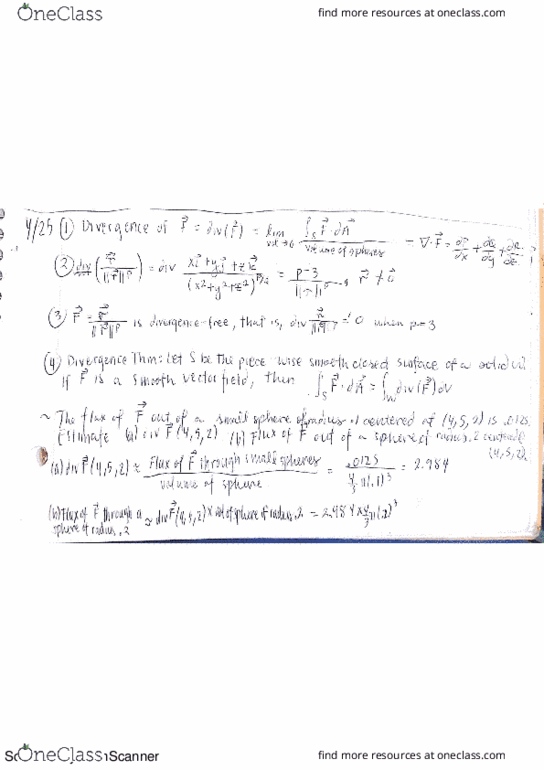 OneClass
find more resources at oneclass.com
4/25 ① Divergence of F⃗ = div(F⃗) = lim vol→0 ∫_S F⃗·dA⃗ / volume of spheres = ∇·F⃗ = ∂P/∂x + ∂Q/∂y + ∂R/∂z
② div (r⃗/||r⃗||^p) = div (xi⃗+yj⃗+zk⃗)/(x²+y²+z²)^p/2 = p-3 / r⃗ ≠ 0⃗
③ F⃗ = r⃗/||r⃗||^p is divergence-free, that is, div = 0 when p=3
④ Divergence Thm: Let S be the piece wise smooth closed surface of a solid
If F⃗ is a smooth vector field, then ∫_S F⃗·dA⃗ = ∫_W div(F⃗)dV
~ The flux of F⃗ out of a small sphere of radius .1 centered at (4,5,2) is .0125.
Estimate (a) div F⃗ (4,5,2) (b) Flux of F⃗ out of a sphere of radius .2 centered
(4,5,2)
(a) div F⃗ (4,5,2) ≈ Flux of F⃗ through small spheres / volume of sphere = .0125 / 4/3 π(.1)³ = 2.984
(b) Flux of F⃗ through a ≈ div F⃗(4,5,2) × vol of sphere of radius .2 = 2.984 × 4/3 π(.2)³
sphere of radius .2
OneClass
Scanner
find more resources at oneclass.com